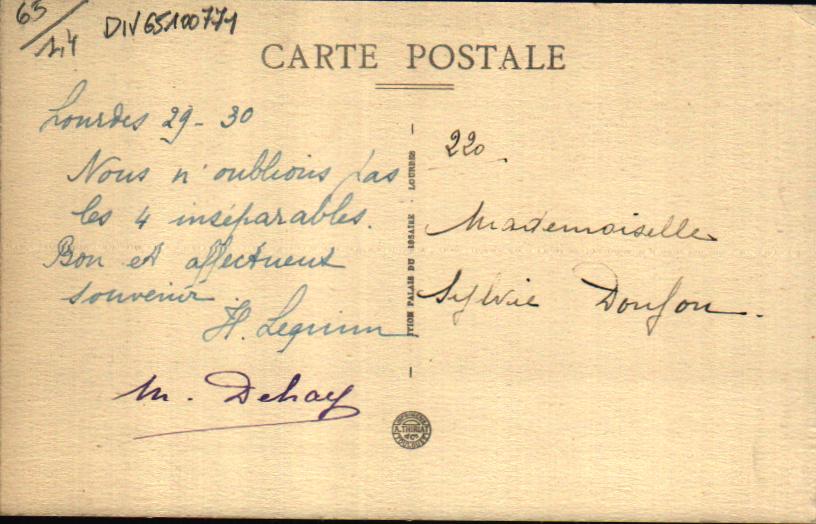 65/
1,4
DIV65100771
CARTE POSTALE
Lourdes 29-30
Nous n'oublions pas
les 4 inséparables.
Bon et affectueux
souvenir
H. Lequinn
M. Dehay
ITION PALAIS DU ROSAIRE - LOURDES
220
Mademoiselle
Sylvie Doufou.
A. THIRIAT